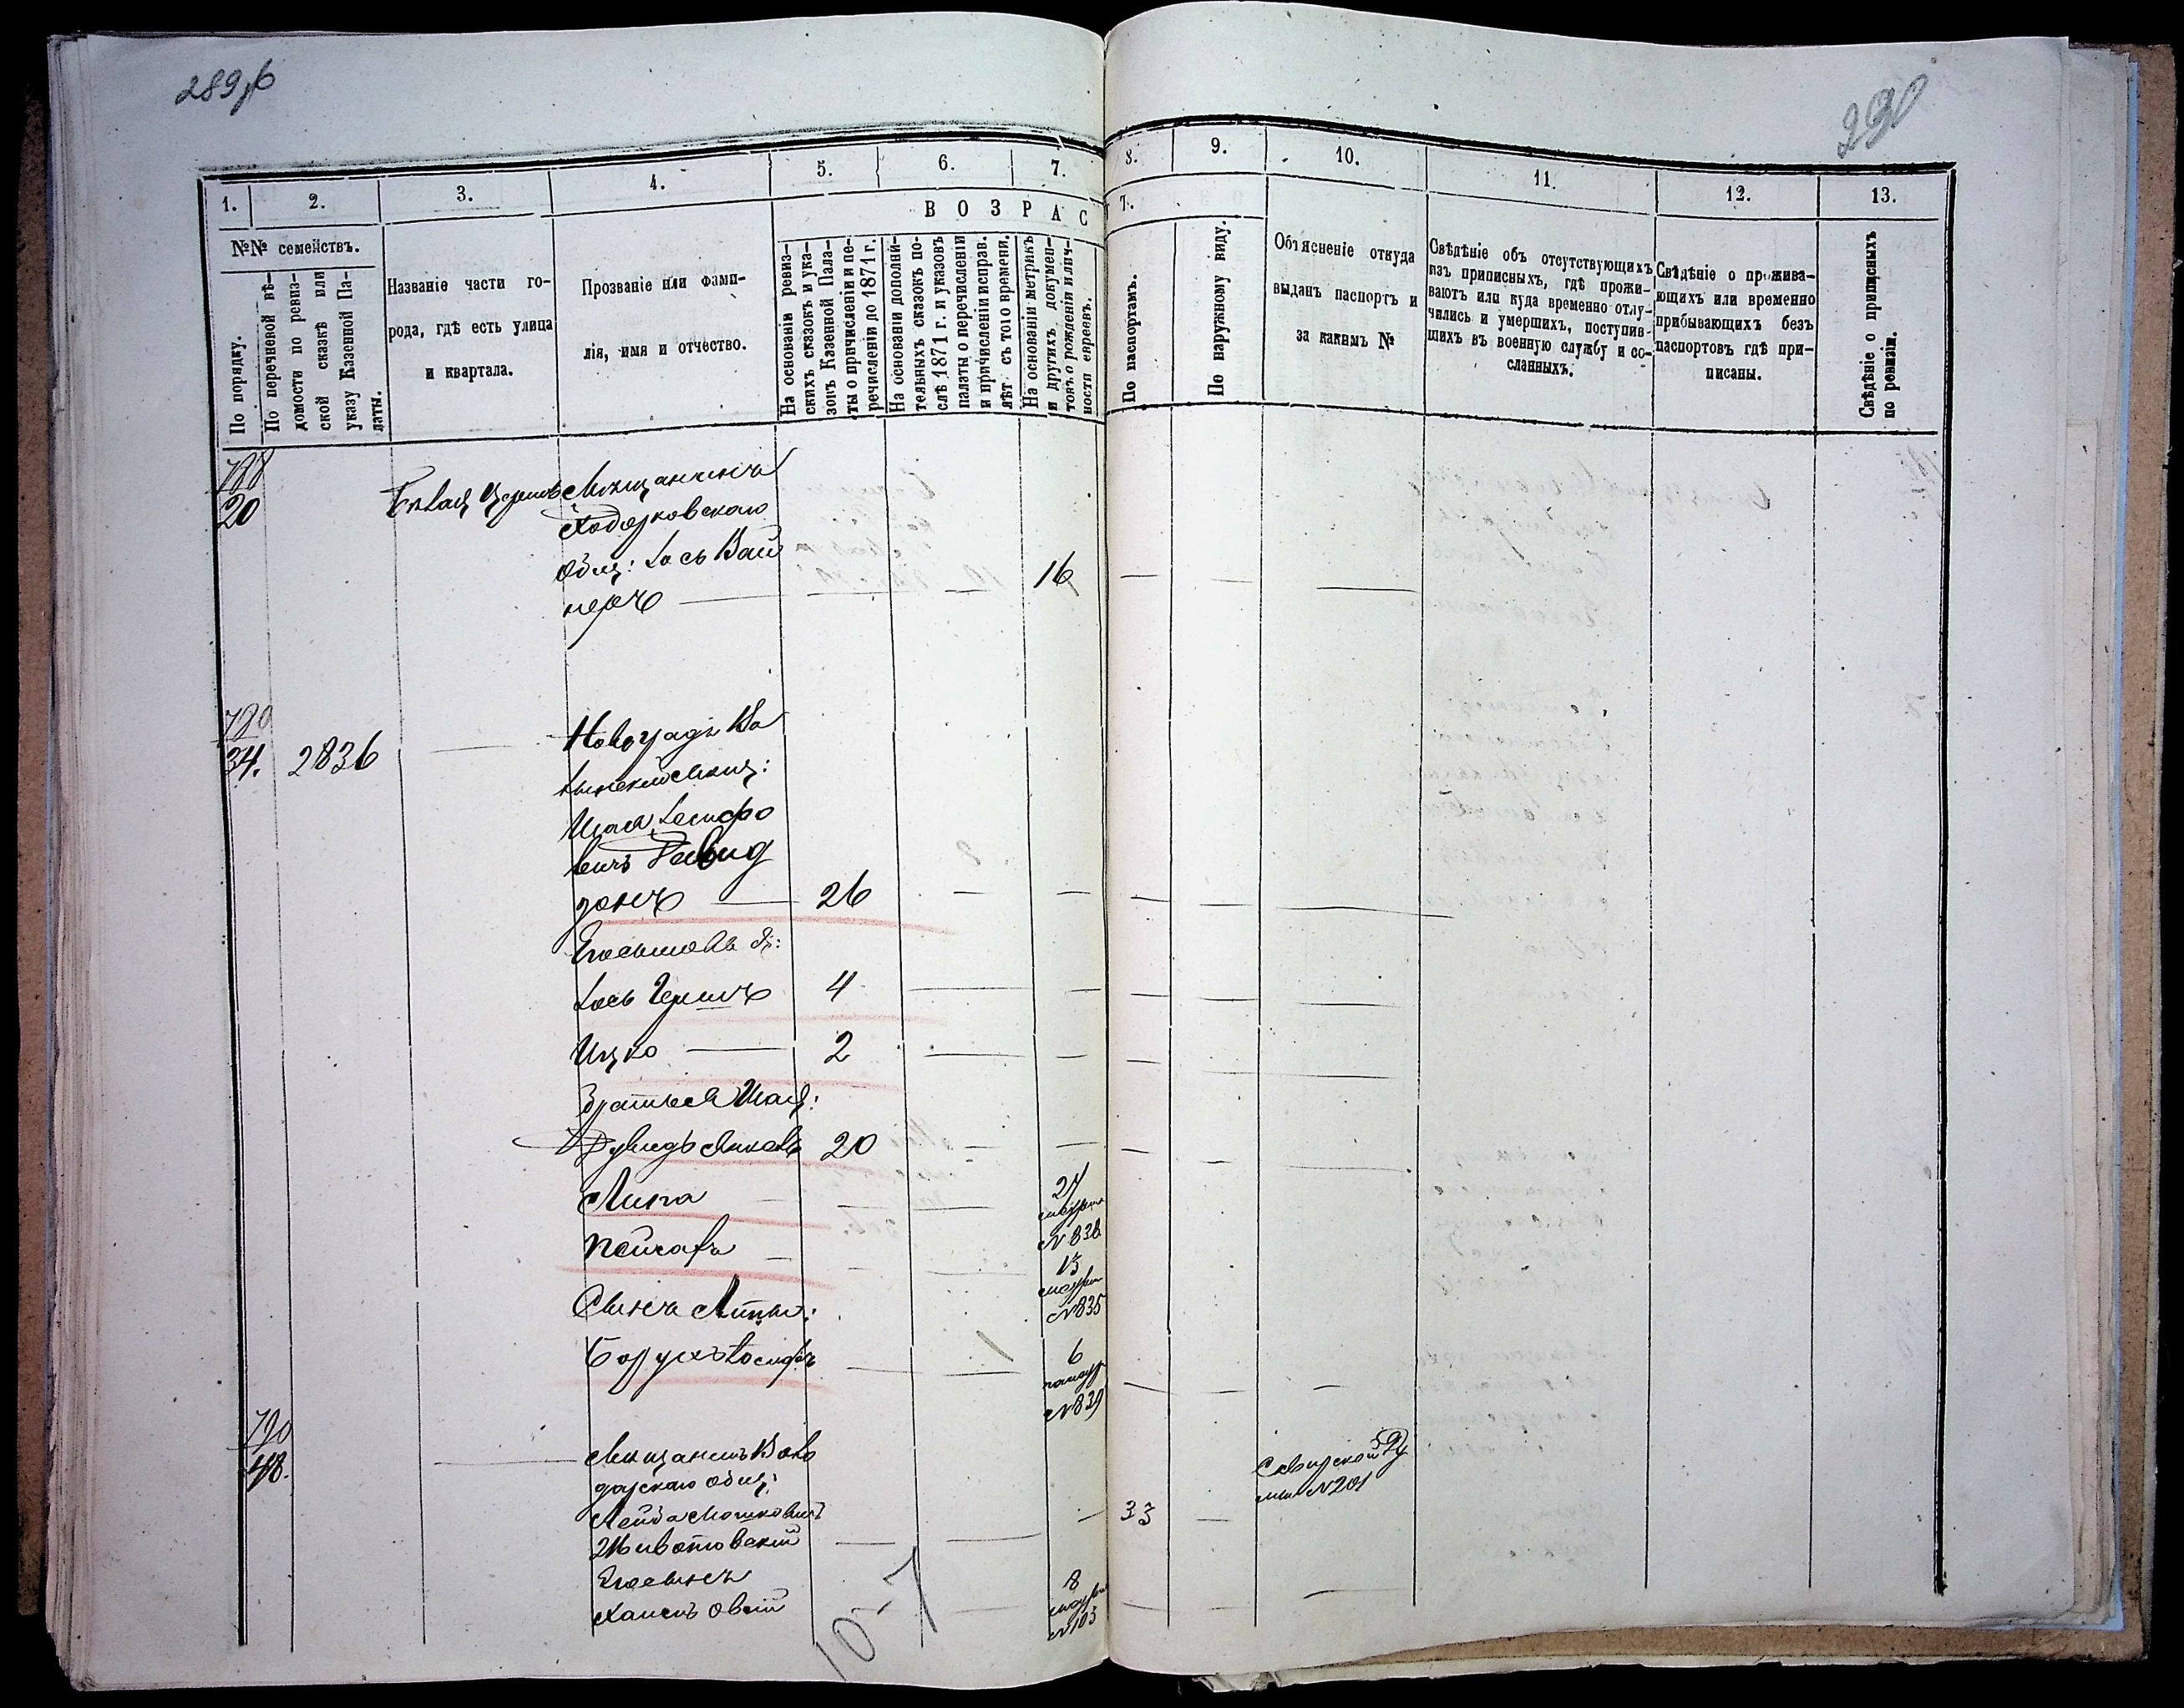 289об
290
1.
2.
3.
4.
5.
6.
7.
8.
9.
10.
11.
12.
13.
В О З Р А С Т
№№ семействъ.
По порядку.
По перечневой вѣ-
домости по ревиз-
ской сказкѣ или
указу Казенной Па-
латы.
Названіе части го-
рода, гдѣ есть улица
и квартала.
Прозваніе или фами-
лія, имя и отчество.
На основаніи ревиз-
скихъ сказокъ и ука-
зовъ Казенной Пала-
ты о причисленіи и пе-
речисленіи до 1871 г.
На основаніи дополни-
тельныхъ сказокъ по-
слѣ 1871 г. и указовъ
палаты о перечисленіи
и причисленіи исправ.
лѣт. съ того времени.
На основаніи метрикъ
и другихъ докумен-
товъ о рожденіи и лич-
ности евреевъ.
По паспортамъ.
По наружному виду.
Объясненіе откуда
выданъ паспортъ и
за какимъ №
Свѣдѣніе объ отсутствующихъ
изъ приписныхъ, гдѣ прожи-
ваютъ или куда временно отлу-
чились и умершихъ, поступив-
шихъ въ военную службу и со-
сланныхъ.
Свѣдѣніе о прожива-
ющихъ или временно
прибывающихъ безъ
паспортовъ гдѣ при-
писаны.
Свѣдѣніе о приписныхъ
по ревизіи.
788
20
Бѣлая Церковь
Мѣщанинъ
Ходорковскаго
Общ: Іось Вай
неръ — 16
789
34. 2836
Новоградъ Во
лынскій Мѣщ:
Шая Іосифо
вичъ
— 26
Егосынов:
Іось Гершъ 4
Ицко — 2
Братья Шаи:
Янкель 20
Липа — 27
№ 838
Пейсахъ — 13
№ 835
Сынъ Липы:
Борухъ Іосифъ 6
№ 839
790
48.
Мѣщанинъ Воло
дарскаго Общ:
Лейба Мошковичъ
Животовскій — 33
Сквирской
№ 201
Егосынъ
8
№ 103
10-7